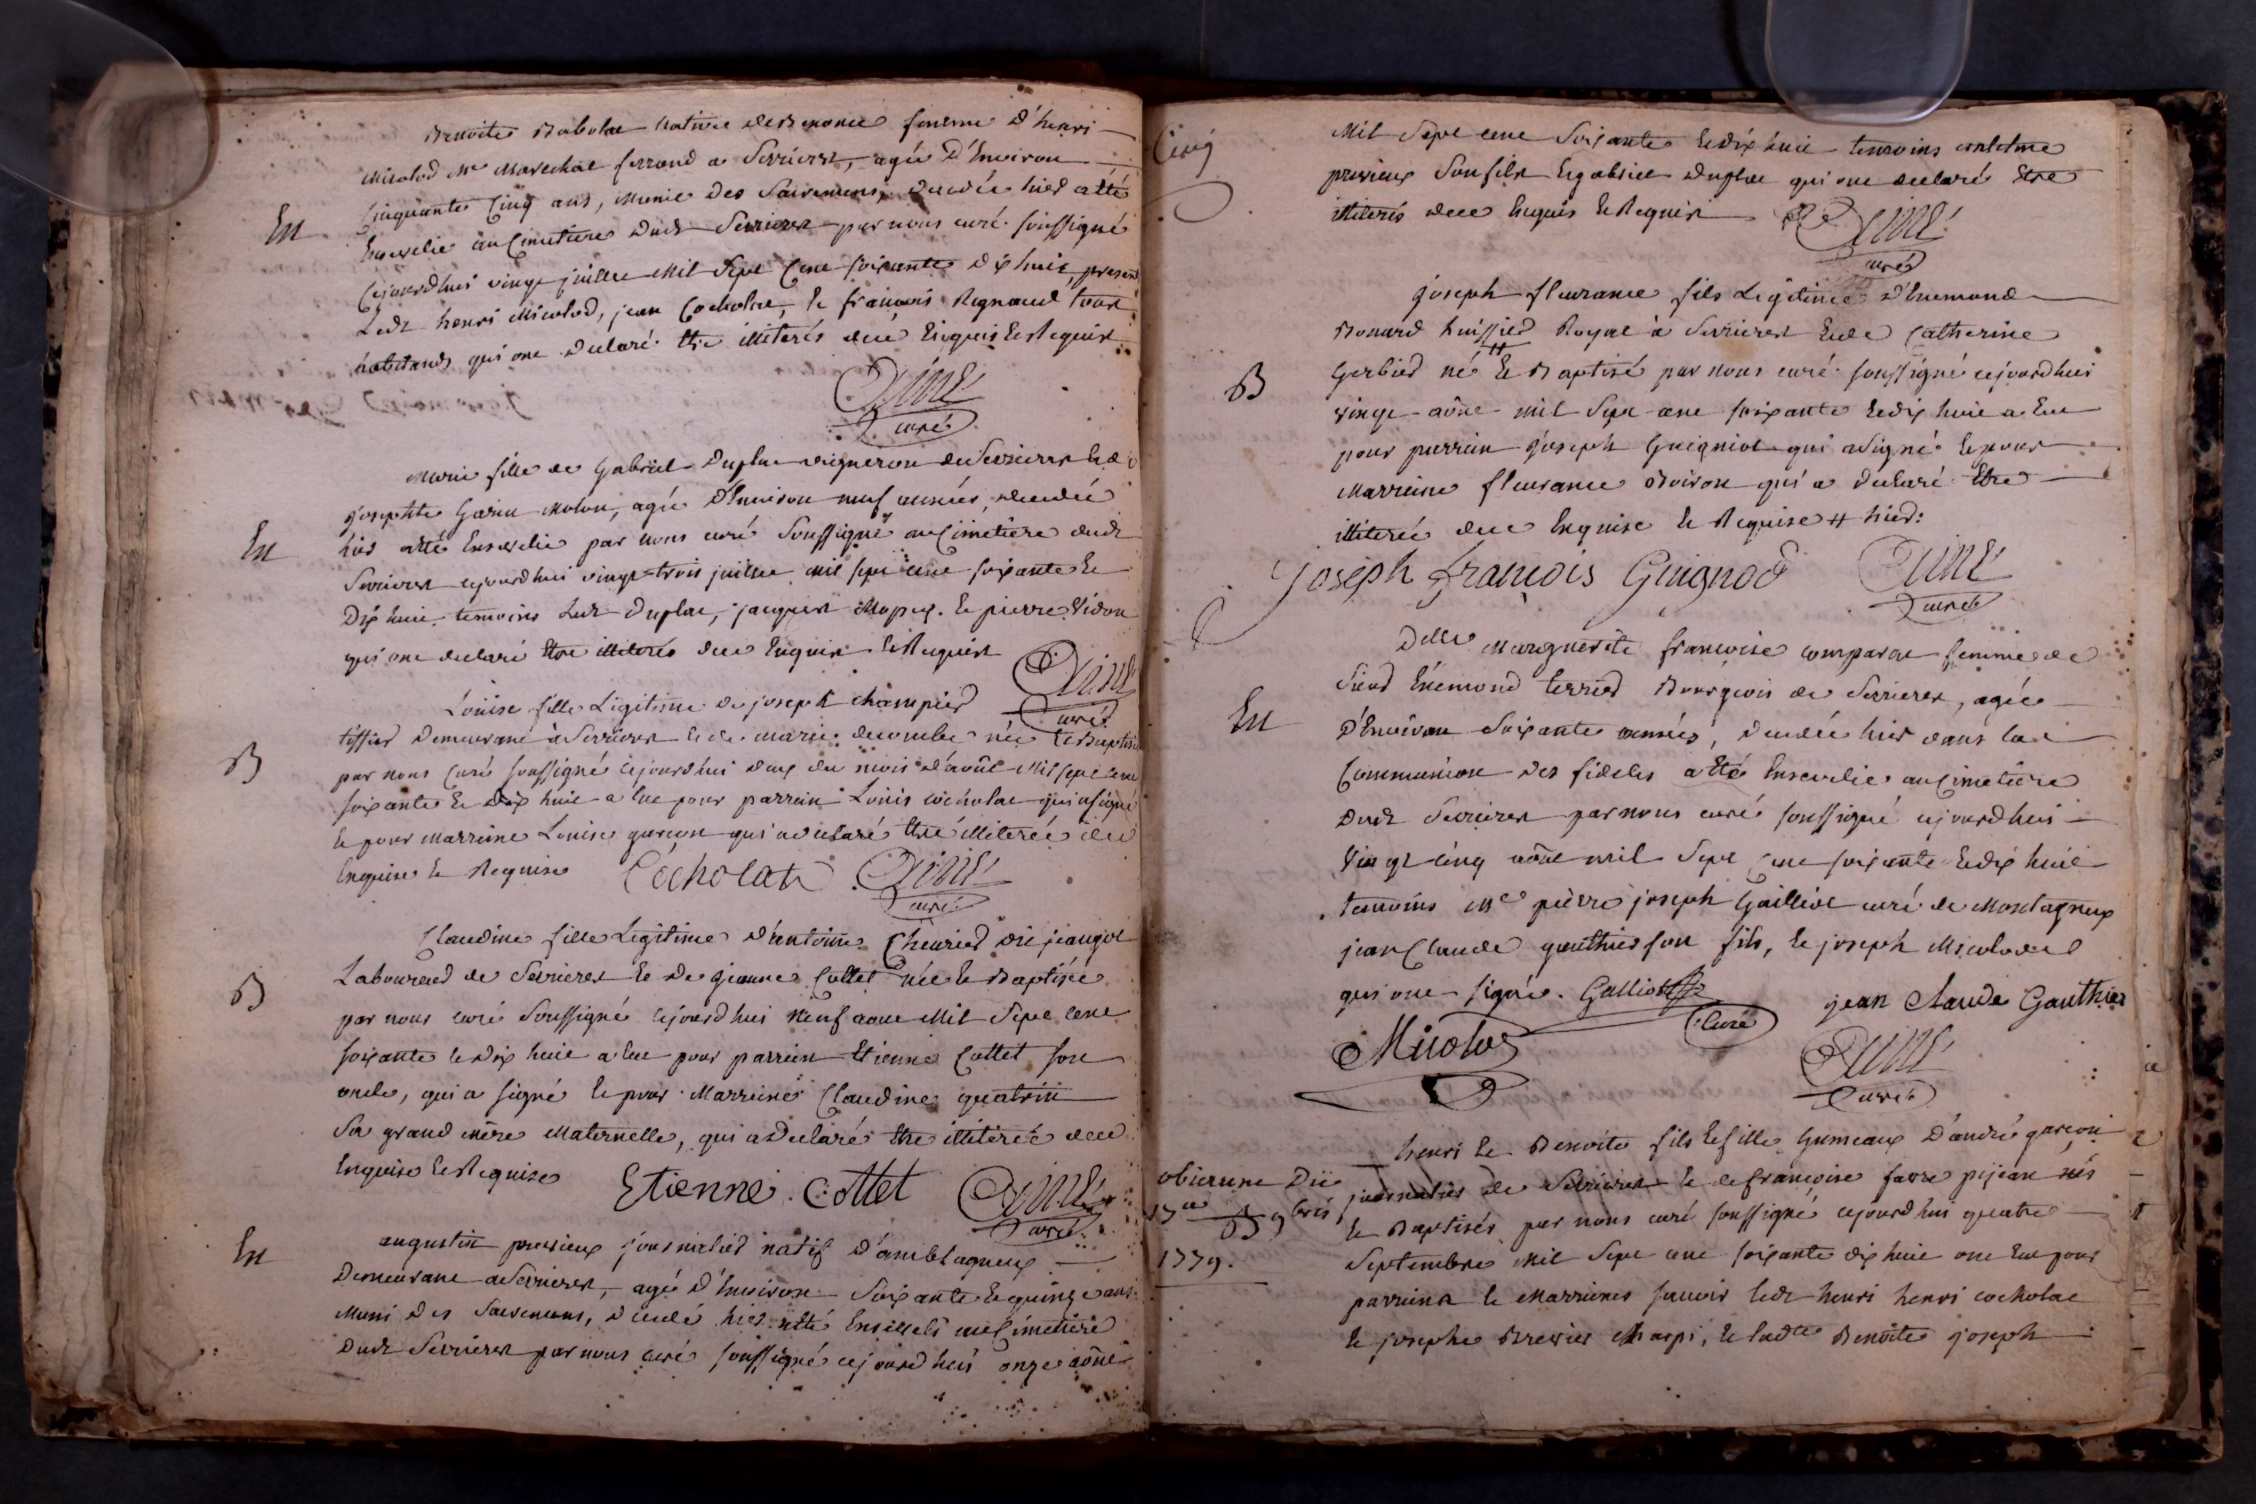 Benoite Babolat Native de Benonce femme d'henri
Micolod Me Marechal ferrand a Serrieres, agée d'Environ
Cinquante Cinq ans, Munie des Sacremens, decedée hier a été
En
Ensevelie au Cimetiere dudt Serrieres par nous curé soussigné
Cejourdhui vingt juillet Mil Sept Cent soixante dix huit, present
Ledt henri Micolod, jean Cocholat, et francois Regnaud tous
habitands qui ont declaré Etre illiterés dece Enquis Et Requis
curé
Marie fille de Gabriel Duplat vigneron de Serrieres Et de
josephte Garin Molon, agée d'Environ neuf années, decedée
En
hier a été Ensevelie par nous curé Soussigné au Cimetiere dudt
Serrieres cejourdhui vingt trois juillet mil sept cent soixante Et
Dix huit temoins Ledt Duplat, jacques et pierre Vidon
qui ont declaré Etre illiterés dece Enquis Et Requis
curé
Louise fille Legitime de joseph Champier
tissier demeurant à Serrieres Et de marie née Et Baptisée
B
par nous Curé soussigné cejourdhui deux du mois d'août Mil sept Cent
soixante Et dix huit a Eut pour parrain Louis Cocholat qui a signé
Et pour Marraine Louise garçon qui a declaré Etre illiterée dece
Enquise Et Requise Cocholat
curé
Claudine fille Legitime d'antoine Cheurier dit jeangot
Laboureur de Serrieres Et de jeanne Cottet née Et Baptisée
B
par nous curé Soussigné cejourdhui Neuf aout Mil Sept Cent
soixante Et dix huit a Eut pour parrain Etienne Cottet son
oncle, qui a signé Et pour Marraine Claudine quatrin
Sa grand mère Maternelle, qui a declaré Etre illiterée dece
Enquise Et Requise Etienne Cottet
curé
En
augustin prerieux journalier natif d'amblagneux
Demeurant a Serrieres, agé d'Environ Soixante Et quinze ans
Muni des Sacremens, decedé hier a été Enseveli au Cimetiere
Dudt Serrieres par nous curé soussigné cejourdhui onze aoûst
Cinq
Mil Sept cent Soixante Et dix huit temoins
prerieux Son fils Et gabriel Duplat qui ont declaré Etre
illiterés dece Enquis Et Requis
curé
joseph fleurance fils Legitime d'Enemond
Bonard huissier Royal à Serrieres Et de Catherine
B
Gerbier né # Et Baptisé par nous curé soussigné cejourdhui
vingt aoûst mil Sept cent soixante Et dix huit a Eut
pour parrain joseph Guigniot qui a Signé Et pour
Marraine fleurance Boiron qui a declaré Etre
illiterée dece Enquise Et Requise # hier:
Joseph françois Guignod
curé
Delle Marguerite françoise comparat femme de
Sieur Enemond terrier Bourgeois de Serrieres, agée
En
D'Environ Soixante années, decedée hier dans la
Communion des fideles a été Ensevelie au Cimetiere
Dudt Serrieres par nous curé soussigné cejourdhui
Vingt Cinq aoûst mil Sept Cent soixante Et dix huit
temoins Me pierre joseph Galliot curé de Montagneux
jean Claude gauthier son fils, Et joseph Micolod
qui ont signé. Galliot curé
jean Claude Gauthier
Micolod
curé
henri Et Benoite fils Et fille Gumeaux D'andré garçon
obierunt Die
journalier de Serrieres Et de françoise favre pijean nés
17a 9bris
B
Et Baptisés par nous curé soussigné cejourdhui quatre
1779.
Septembre Mil Sept cent soixante dix huit ont Eut pour
parrains Et Marraines savoir Ledt henri henri cocholat
Et josephe Brevier Charpi, Et ladte Benoite joseph